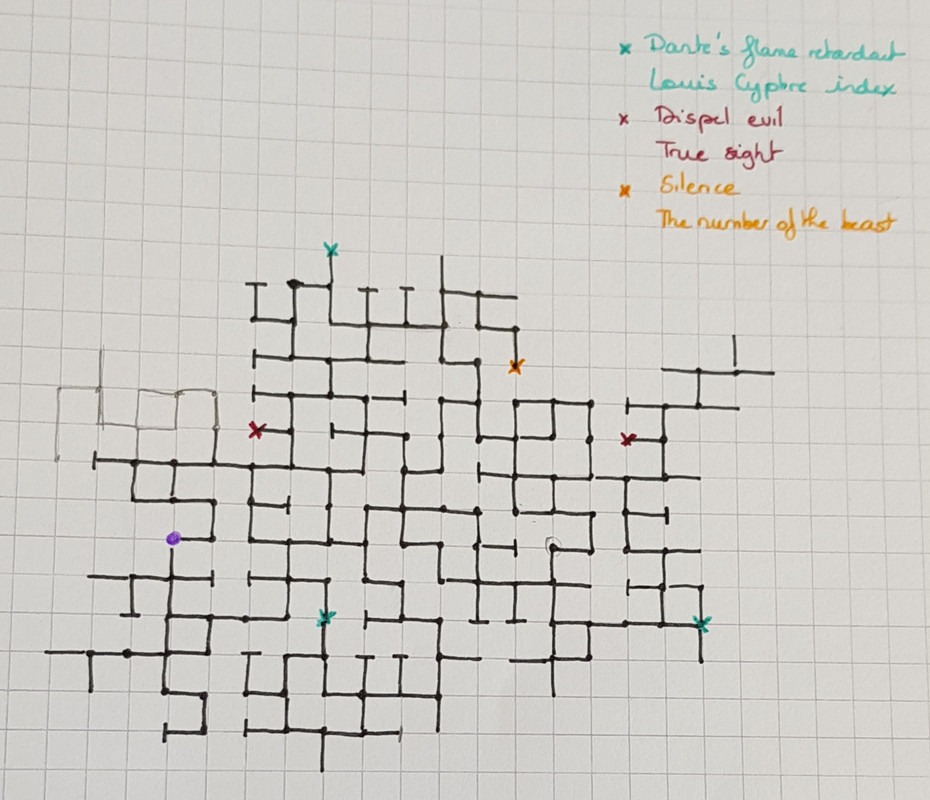 x Dante's flame retardant
Louis Cyphre index
x Dispel evil
True sight
x Silence
The number of the beast